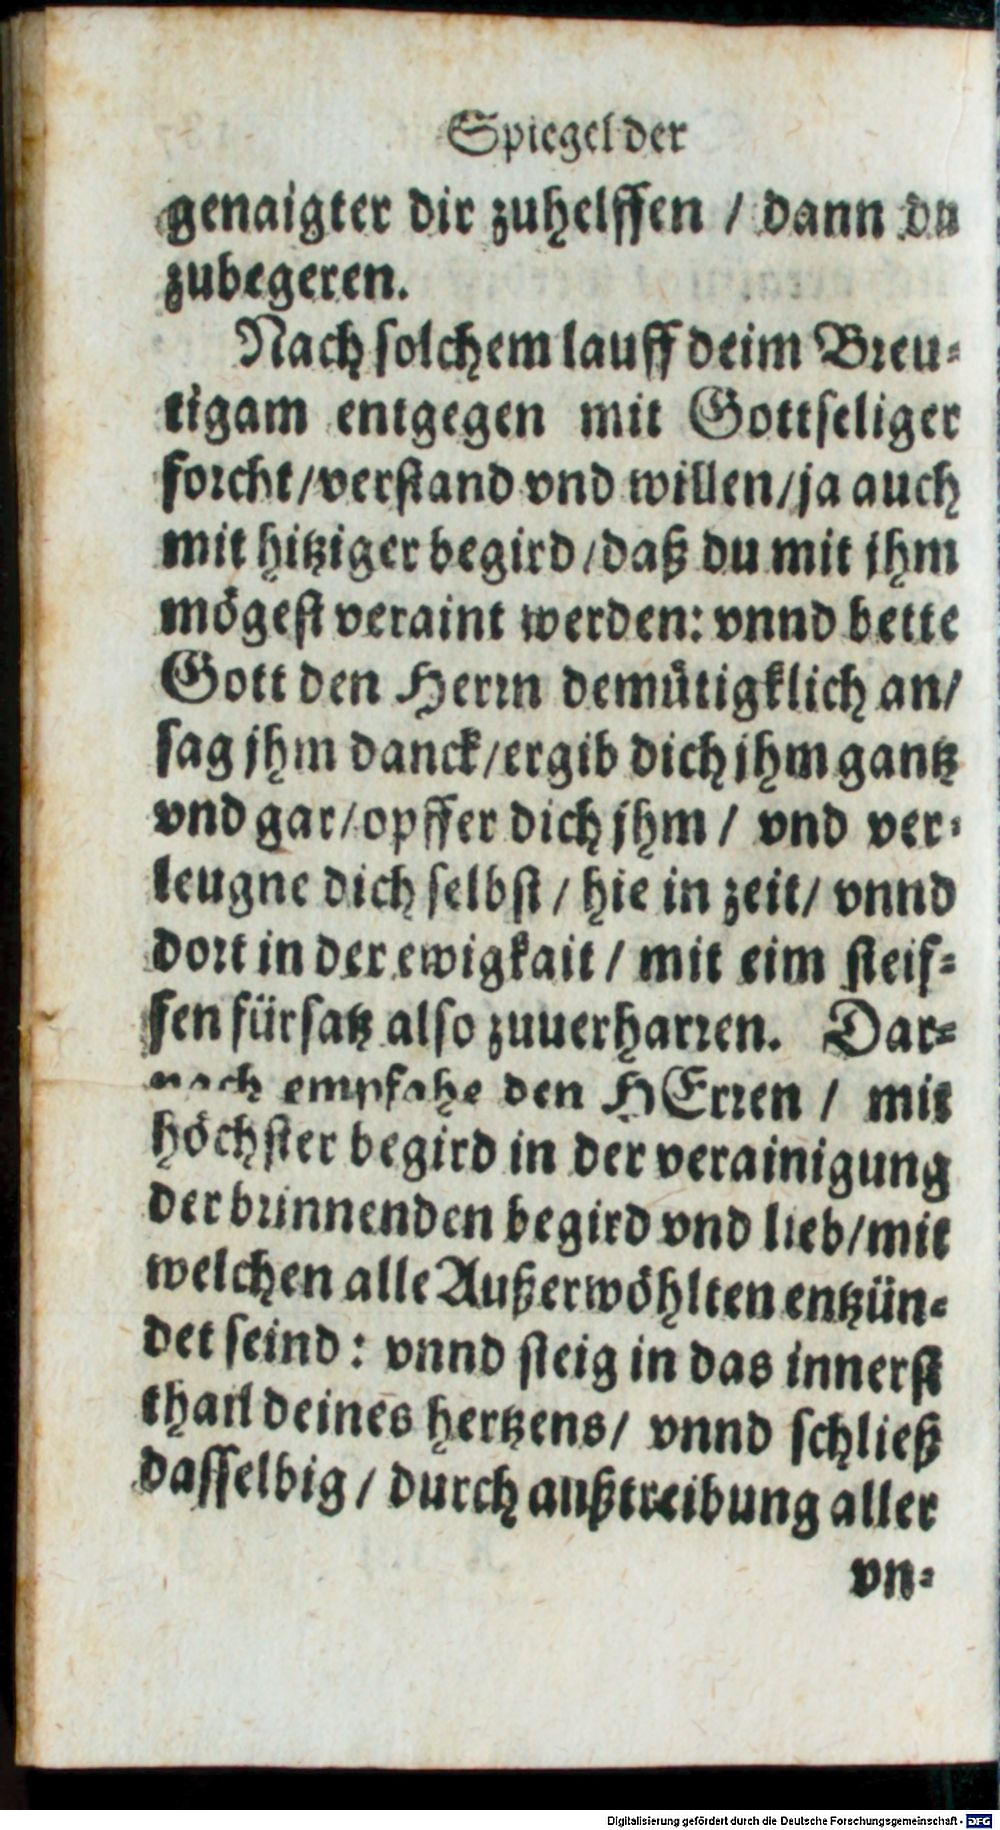 Spiegel der
genaigter dir zuhelffen / dann du
zubegeren.
Nach solchem lauff deim Breu⸗
tigam entgegen mit Gottseliger
forcht / verstand vnd willen / ja auch
mit hitziger begird / daß du mit jhm
mögest veraint werden: vnnd bette
Gott den Herrn demütigklich an /
sag jhm danck / ergib dich jhm gantz
vnd gar / opffer dich jhm / vnd ver⸗
leugne dich selbst / hie in zeit / vnnd
dort in der ewigkait / mit eim steif⸗
fen fürsatz also zuuerharren. Dar⸗
nach empfahe den HErren / mit
höchster begird in der verainigung
der brinnenden begird vnd lieb / mit
welchen alle Außerwöhlten entzün⸗
det seind : vnnd steig in das innerst
thail deines hertzens / vnnd schließ
dasselbig / durch außtreibung aller
vn⸗
Digitalisierung gefördert durch die Deutsche Forschungsgemeinschaft - DFG